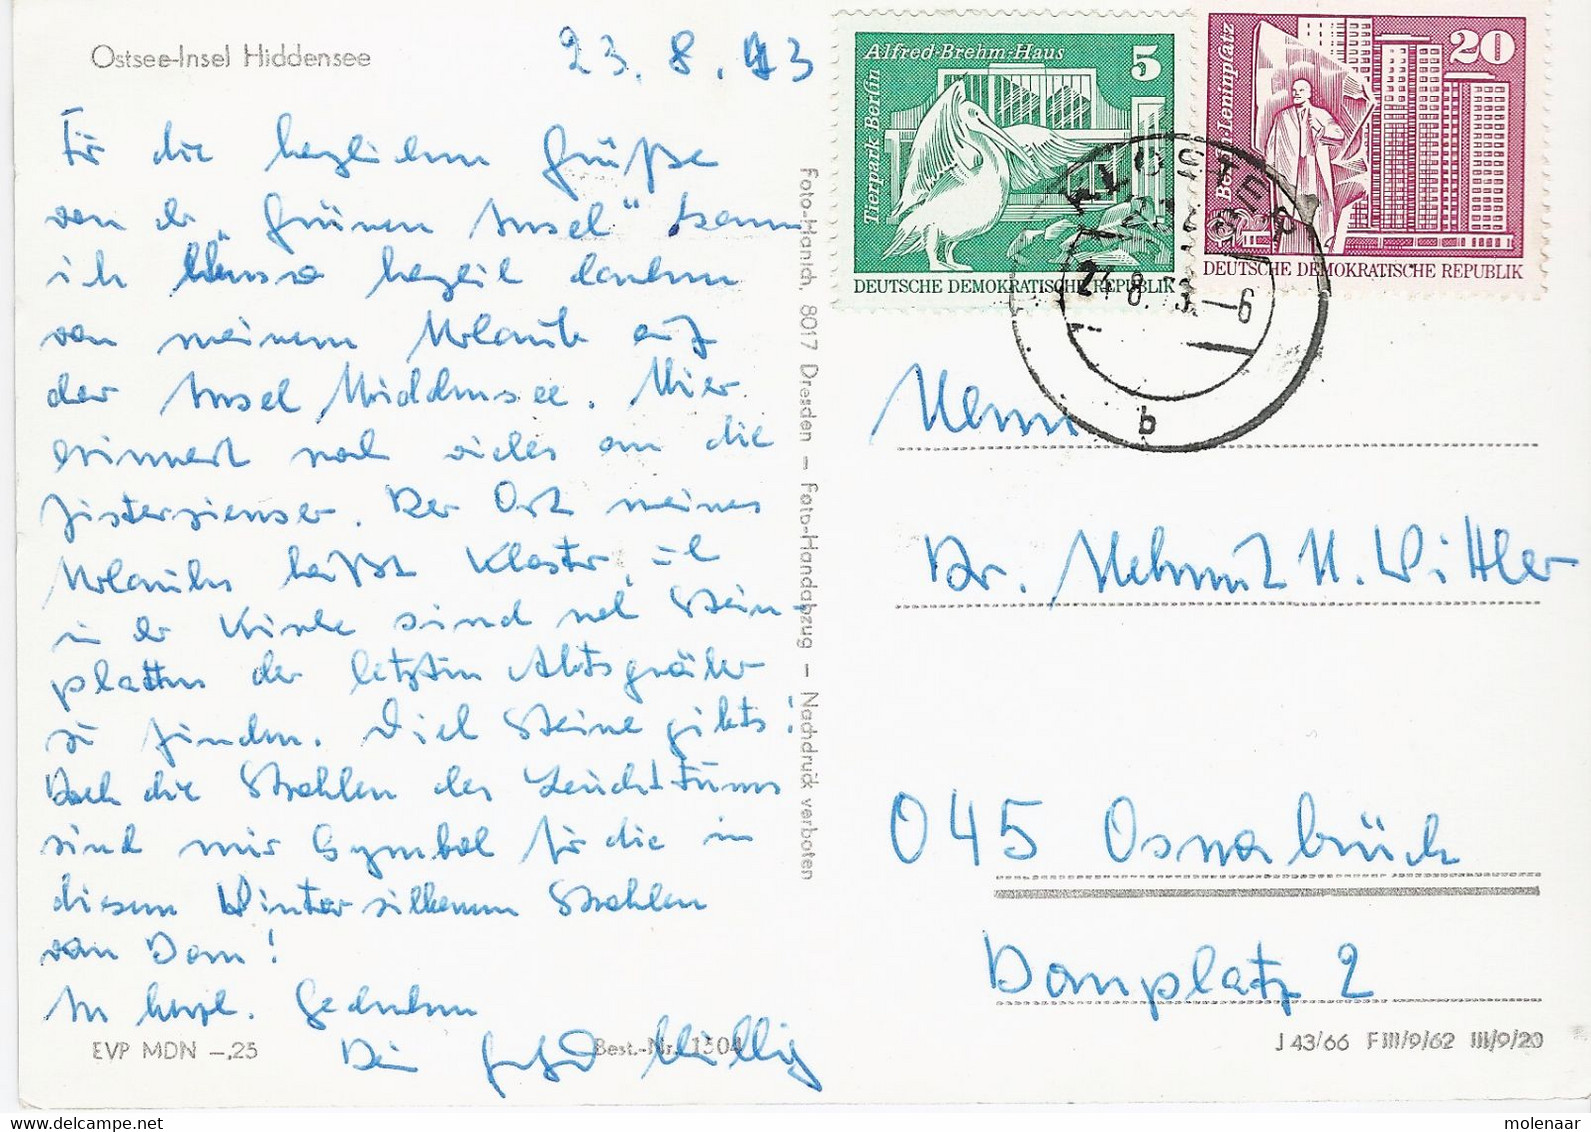 Ostsee-Insel Hiddensee
23. 8. 73
Für die herzlichen Grüße
von der "Grünen Insel" kann
ich ebenso herzlich danken
von meinem Urlaub auf
der Insel Hiddensee. Hier
erinnert noch vieles an die
Zisterzienser. Der Ort meines
Urlaubs heißt Kloster,
in der Kirche sind noch Stein-
platten der letzten Abtsgräber
zu finden. Viel Steine gibts!
Doch die Strahlen des Leuchtturms
sind mir Symbol für die in
diesem Winter silbernen Strahlen
vom Dom!
In herzl. Gedenken
Dein
EVP MDN -,25
Best.-Nr. 1504
Foto-Hanich, 8017 Dresden – Foto-Handabzug – Nachdruck verboten
Alfred-Brehm-Haus
5
Tierpark Berlin
DEUTSCHE DEMOKRATISCHE REPUBLIK
20
Berlin-Leninplatz
DEUTSCHE DEMOKRATISCHE REPUBLIK
KLOSTER
24.8.73.-6
b
Herrn
Dr. Helmut H. Wittler
045 Osnabrück
Domplatz 2
J 43/66 F III/9/62 III/9/20
molenaar